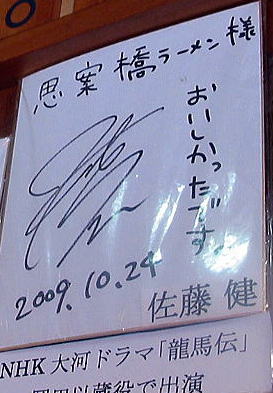 思案橋ラーメン様
おいしかったです。
2009.10.24
佐藤 健
NHK 大河ドラマ「龍馬伝」
岡田以蔵役で出演